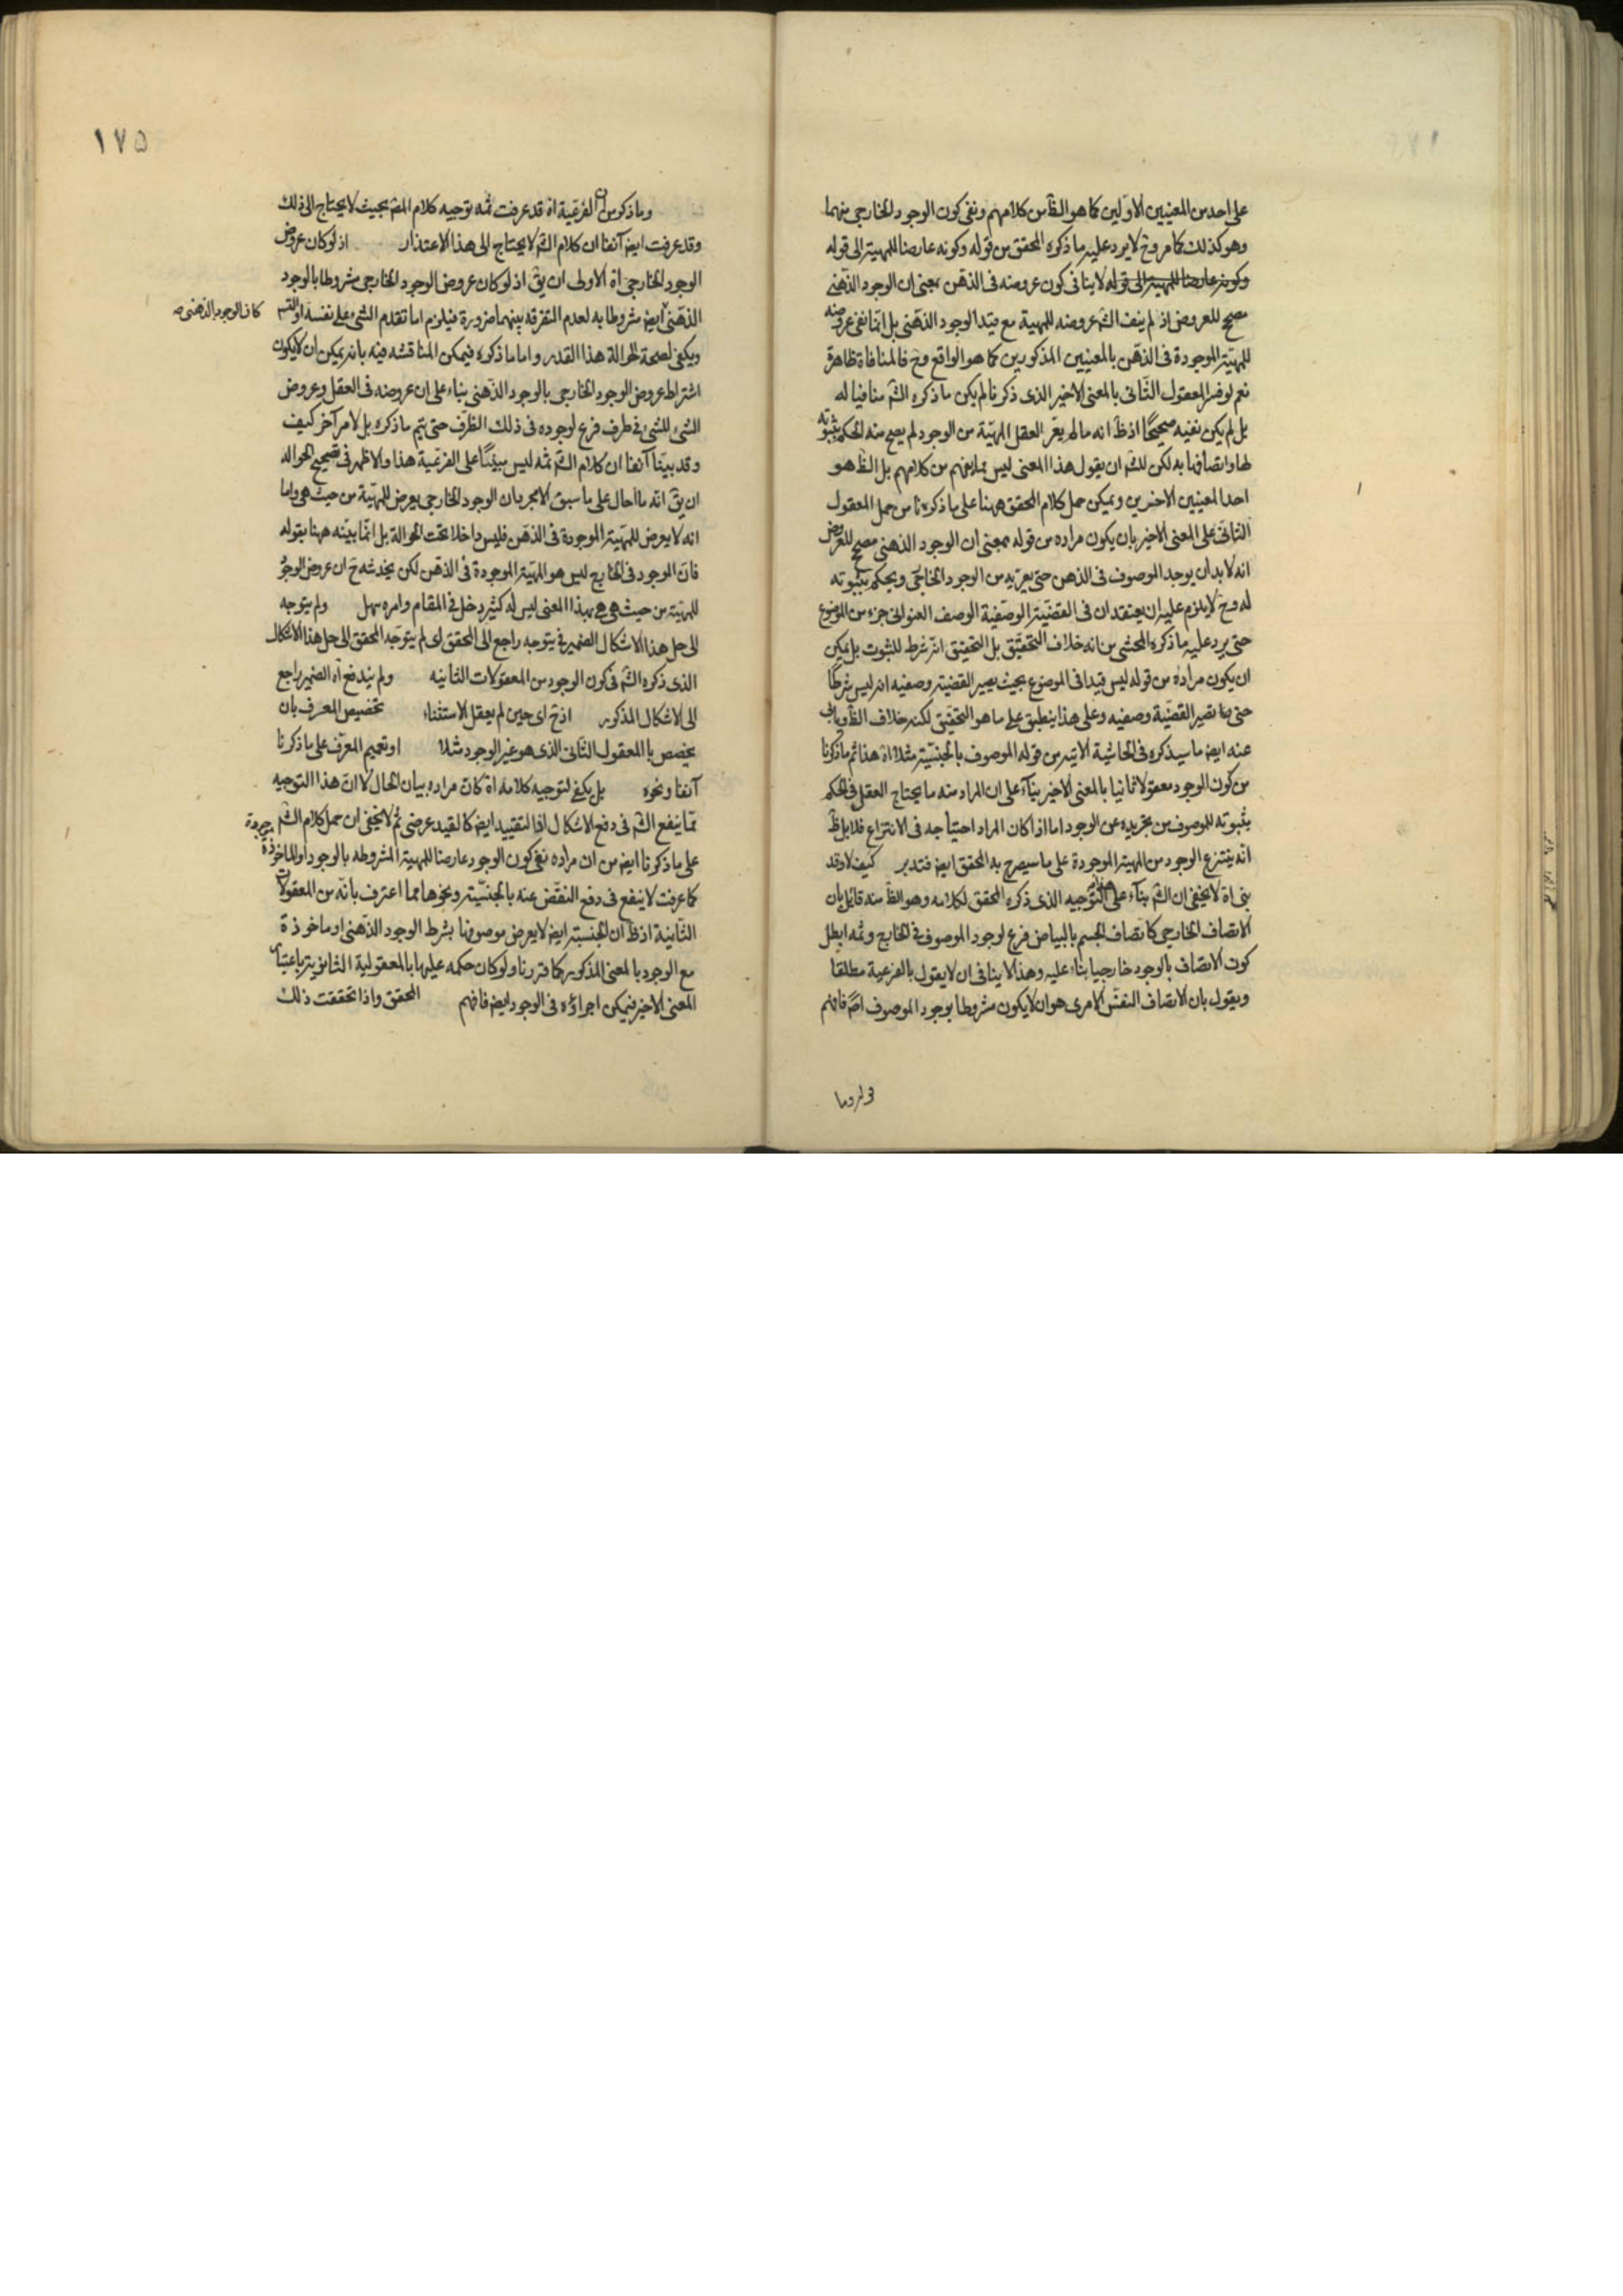 على احد من المعنيين الاولين كما هو الظ من كلامهم ونفى كون الوجود الخارجى منهما
وهو كذلك كما مر وح لا يرد عليه ما ذكره المحقق من قوله وكونه عارضا للمهية الى قوله
وكونه عارضا للمهية الى قوله لا ينافى كون عروضه فى الذهن بمعنى ان الوجود الذهنى
مصحح للعروض اذ لم ينف الش عروضه للمهية مع قيد الوجود الذهنى بل انما نفى عروضه
للمهية الموجودة فى الذهن بالمعنيين المذكورين كما هو الواقع وح فالمنافاة ظاهرة
نعم لو فسر المعقول الثانى بالمعنى الاخير الذى ذكرنا لم يكن ما ذكره الش منافيا له
بل لم يكن نفيه صحيحا اذ ظ انه ما لم يعر العقل المهية من الوجود لم يصح منه الحكم بثبوته
لها واتصافها به لكن للش ان يقول هذا المعنى ليس مما يفهم من كلامهم بل الظ هو
احد المعنيين الاخرين ويمكن حمل كلام المحقق ههنا على ما ذكره نا من حمل المعقول
الثانى على المعنى الاخير بان يكون مراده من قوله بمعنى ان الوجود الذهنى مصحح للعروض
انه لا بد ان يوجد الموصوف فى الذهن حتى يعريه من الوجود الخارجى ويحكم بثبوته
له وح لا يلزم عليه ان يعتقد ان فى القضية الوصفية الوصف العنوانى جزء من الموضوع
حتى يرد عليه ما ذكره المحشى من انه خلاف التحقيق بل التحقيق انه شرط للثبوت بل يمكن
ان يكون مراده من قوله ليس قيدا فى الموضوع بحيث يصير القضية وصفيه انه ليس شرطا
حتى تصير القضية وصفيه وعلى هذا ينطبق على ما هو التحقيق لكنه خلاف الظ ويابى
عنه ايض ما سيذكره فى الحاشية الاتية من قوله الموصوف بالجنسية مثلا اه هذا ثم ما ذكرنا
من كون الوجود معقولا ثانيا بالمعنى الاخير بناء على ان المراد منه ما يحتاج العقل فى الحكم
بثبوته للموصوف من تجريده عن الوجود اما اذا كان المراد احتياجه فى الانتزاع فلا بل ظ
انه ينتزع الوجود من المهية الموجودة على ما سيصرح به المحقق ايض فتدبر كيف لا وقد
بنى اه لا يخفى ان الش بناء على التوجيه الذى ذكره المحقق لكلامه وهو الظ منه قائل بان
الاتصاف الخارجى كاتصاف الجسم بالبياض فرع لوجود الموصوف فى الخارج وثمه ابطل
كون الاتصاف بالوجود خارجيا بناء عليه وهذا لا ينافى ان لا يقول بالفرعية مطلقا
ويقول بان الاتصاف النفس الامرى هو ان لا يكون مشروطا بوجود الموصوف اص فافهم
١٧٥
وما ذكره من ان الفرعية اه قد عرفت ثمه توجيه كلام المص بحيث لا يحتاج الى ذلك
وقد عرفت ايض آنفا ان كلام الش لا يحتاج الى هذا الاعتذار اذ لو كان عروض
الوجود الخارجى اه الاولى ان يق اذ لو كان عروض الوجود الخارجى مشروطا بالوجود
الذهنى ايض مشروطا به لعدم التفرقه بينهما ضرورة فيلزم اما تقدم الشئ على نفسه او التسه
كان الوجود الذهنى صه
ويكفى لصحة الحوالة هذا القدر واما ما ذكره فيمكن المناقشه فيه بانه يمكن ان لا يكون
اشتراط عروض الوجود الخارجى بالوجود الذهنى بناء على ان عروضه فى العقل وعروض
الشئ للشئ فى ظرف فرع لوجوده فى ذلك الظرف حتى يتم ما ذكره بل لامر آخر كيف
وقد بينا آنفا ان كلام الش ثمه ليس مبنيا على الفرعية هذا والاظهر فى تصحيح الحواله
ان يق انه ما احال على ما سبق الا مجرد ان الوجود الخارجى يعرض للمهية من حيث هى واما
انه لا يعرض للمهية الموجودة فى الذهن فليس داخلا تحت الحوالة بل انما بينه ههنا بقوله
فان الموجود فى الخارج ليس هو المهية الموجودة فى الذهن لكن يخدشه ح ان عروض الوجود
للمهية من حيث هى هى بهذا المعنى ليس له كثير دخل فى المقام وامره سهل ولم يتوجه
الى حل هذا الاشكال الضمير فى يتوجه راجع الى المحقق اى لم يتوجه المحقق الى حل هذا الاشكال
الذى ذكره الش فى كون الوجود من المعقولات الثانيه ولم يندفع اه الضمير راجع
الى الاشكال المذكور اذ ح اى حين لم يعقل الاستثناء تخصيص المعرف بان
يخصص بالمعقول الثانى الذى هو غير الوجود مثلا او تعميم المعرف على ما ذكرنا
آنفا ونحوه بل يكفى لتوجيه كلامه اه كان مراده بيان الحال لا ان هذا التوجيه
مما ينفع الش فى دفع الاشكال اذ التقييد ايض كالقيد عرضى ثم لا يخفى ان حمل كلام الش
على ما ذكرنا ايض من ان مراده نفى كون الوجود عارضا للمهية المشروطه بالوجود او الماخوذة
كما عرفت لا ينفع فى دفع النقض عنه بالجنسية ونحوها مما اعترف بانه من المعقولات
الثانية اذ ظ ان الجنسية ايض لا يعرض موصوفها بشرط الوجود الذهنى او ماخوذة
مع الوجود بالمعنى المذكور كما قررنا ولو كان حكمه عليها بالمعقولية الثانوية باعتبار
المعنى الاخير فيمكن اجراؤه فى الوجود ايض فافهم المحقق واذا تحققت ذلك